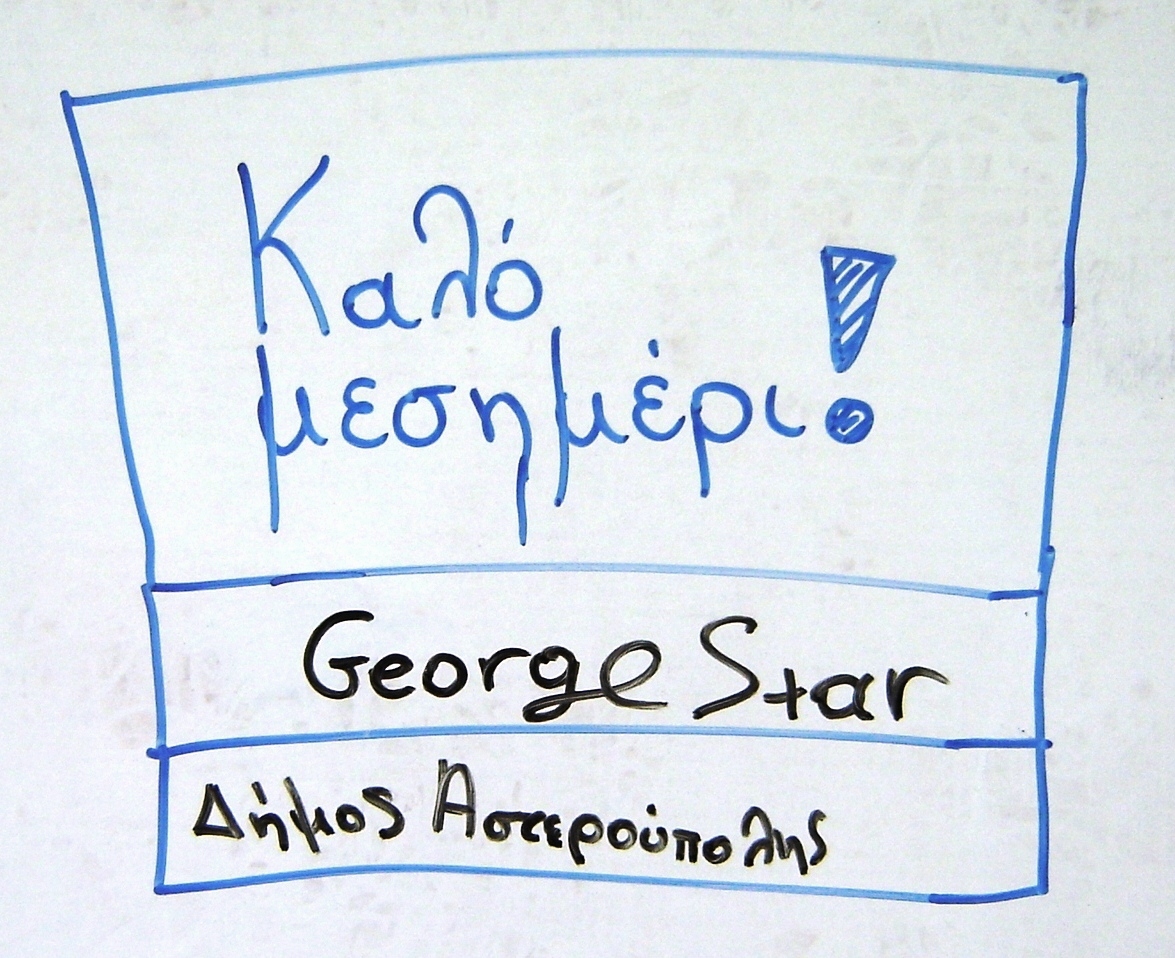 Καλό
μεσημέρι!
George Star
Δήμος Αστερούπολης